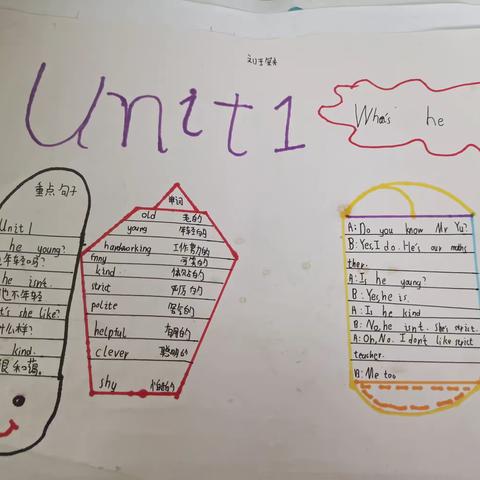 Unit 1
Who's he
重点句子
Unit 1
he young?
年轻吗?
he isnt.
他不年轻
t's she like?
什么样?
kind.
很和蔼。
单词
old 老的
young 年轻的
hardworking 工作努力的
funny
kind
strict 严厉的
polite
helpful 有用的
clever 聪明的
shy
A: Do you know Mr Yu?
B: Yes, I do. He's our maths
ther.
A: Is he young?
B: Yes, he is.
A: Is he kind
B: No, he isn't. she's strict.
A: Oh, No. I don't like strict
teacher.
B: Me too